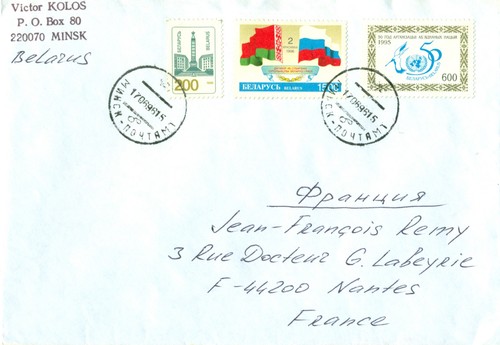 Victor KOLOS
P. O. Box 80
220070 MINSK
Belarus
БЕЛАРУСЬ
BELARUS
200
2
БЕЛАРУСЬ BELARUS
1500
50 ГОД АРГАНІЗАЦЫІ АБ'ЯДНАНЫХ НАЦЫЙ
1995
БЕЛАРУСЬ
600
МИНСК-ПОЧТАМТ
МИНСК-ПОЧТАМТ
Франция
Jean-François Remy
3 Rue Docteur G. Labeyrie
F-44200 Nantes
France